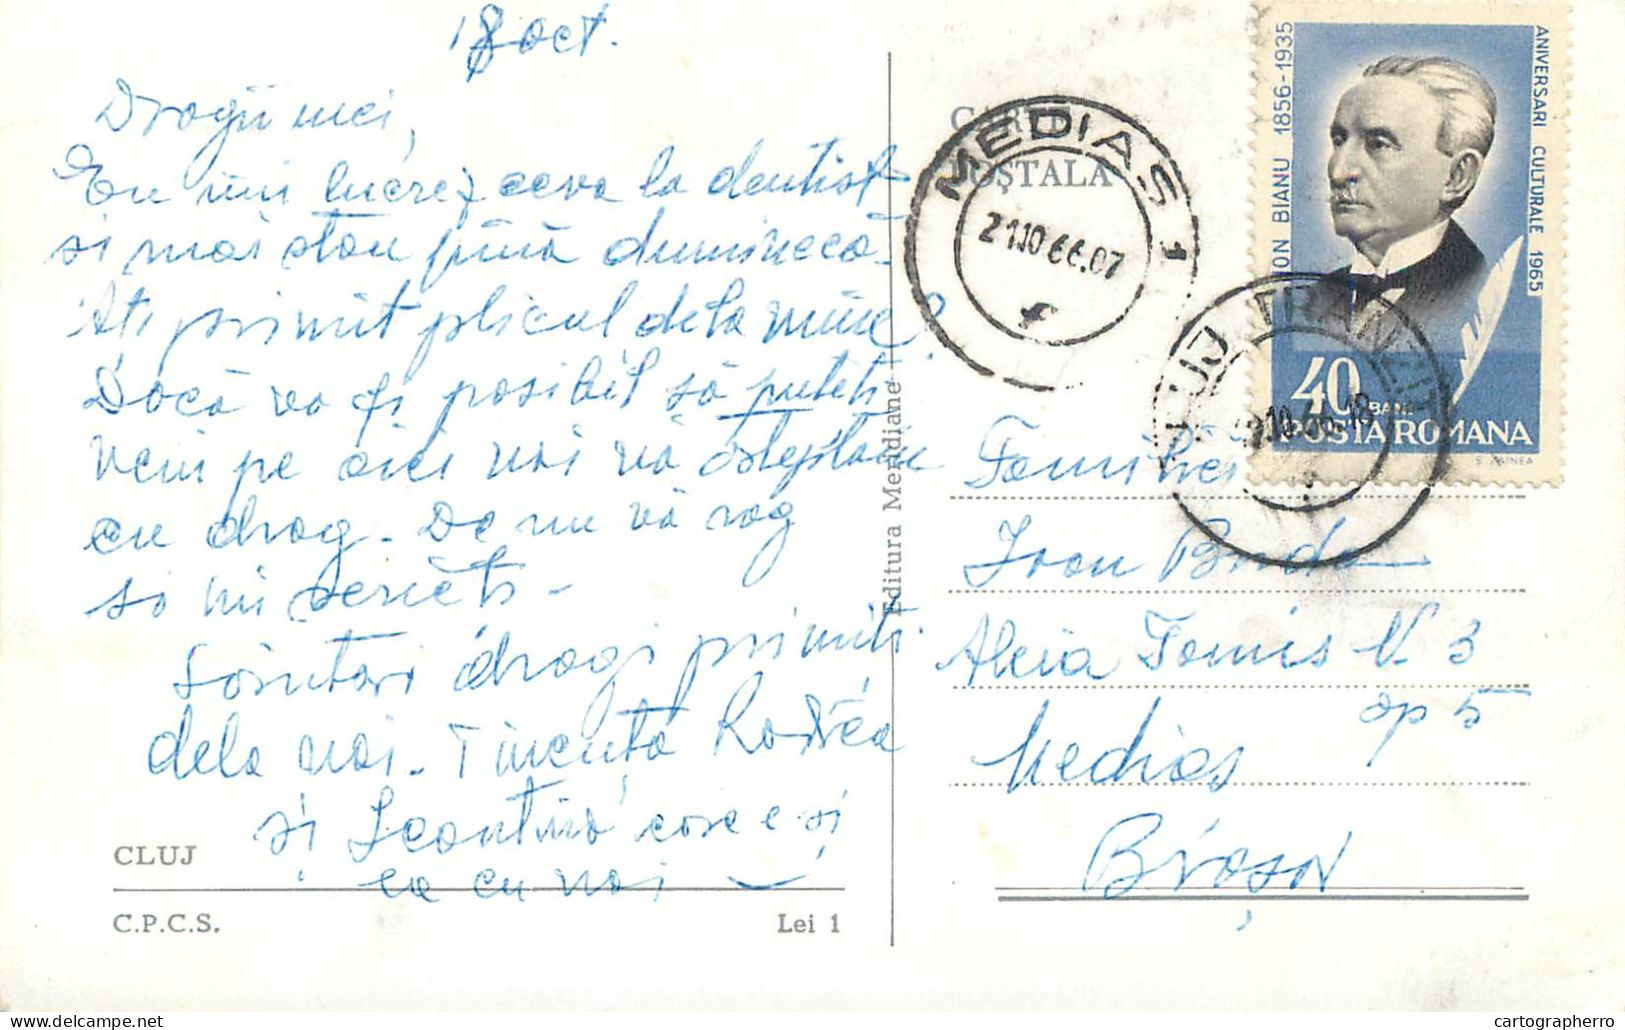 18 oct.
Dragii mei,
Eu îmi lucrez ceva la dentist
și mai stau pînă dumineca.
Ați primit plicul dela mine?
Dacă va fi posibil să puteți
veni pe aici noi vă așteptăm
cu drag. De nu vă rog
să ni scrieți -
Sărutări dragi primiți
dela noi.
și care e și
ea cu noi
CLUJ
C.P.C.S.
Lei 1
Editura Meridiane
CARTE
POȘTALĂ
MEDIAS 1
21.10.66.07
f
ION BIANU 1856-1935
ANIVERSARI CULTURALE 1965
40 BANI
POSTA ROMANA
CLUJ TRANZIT
Familiei
Ioan
Aleia Tomis N. 3
ap 5
Mediaș
Brașov
cartographerro